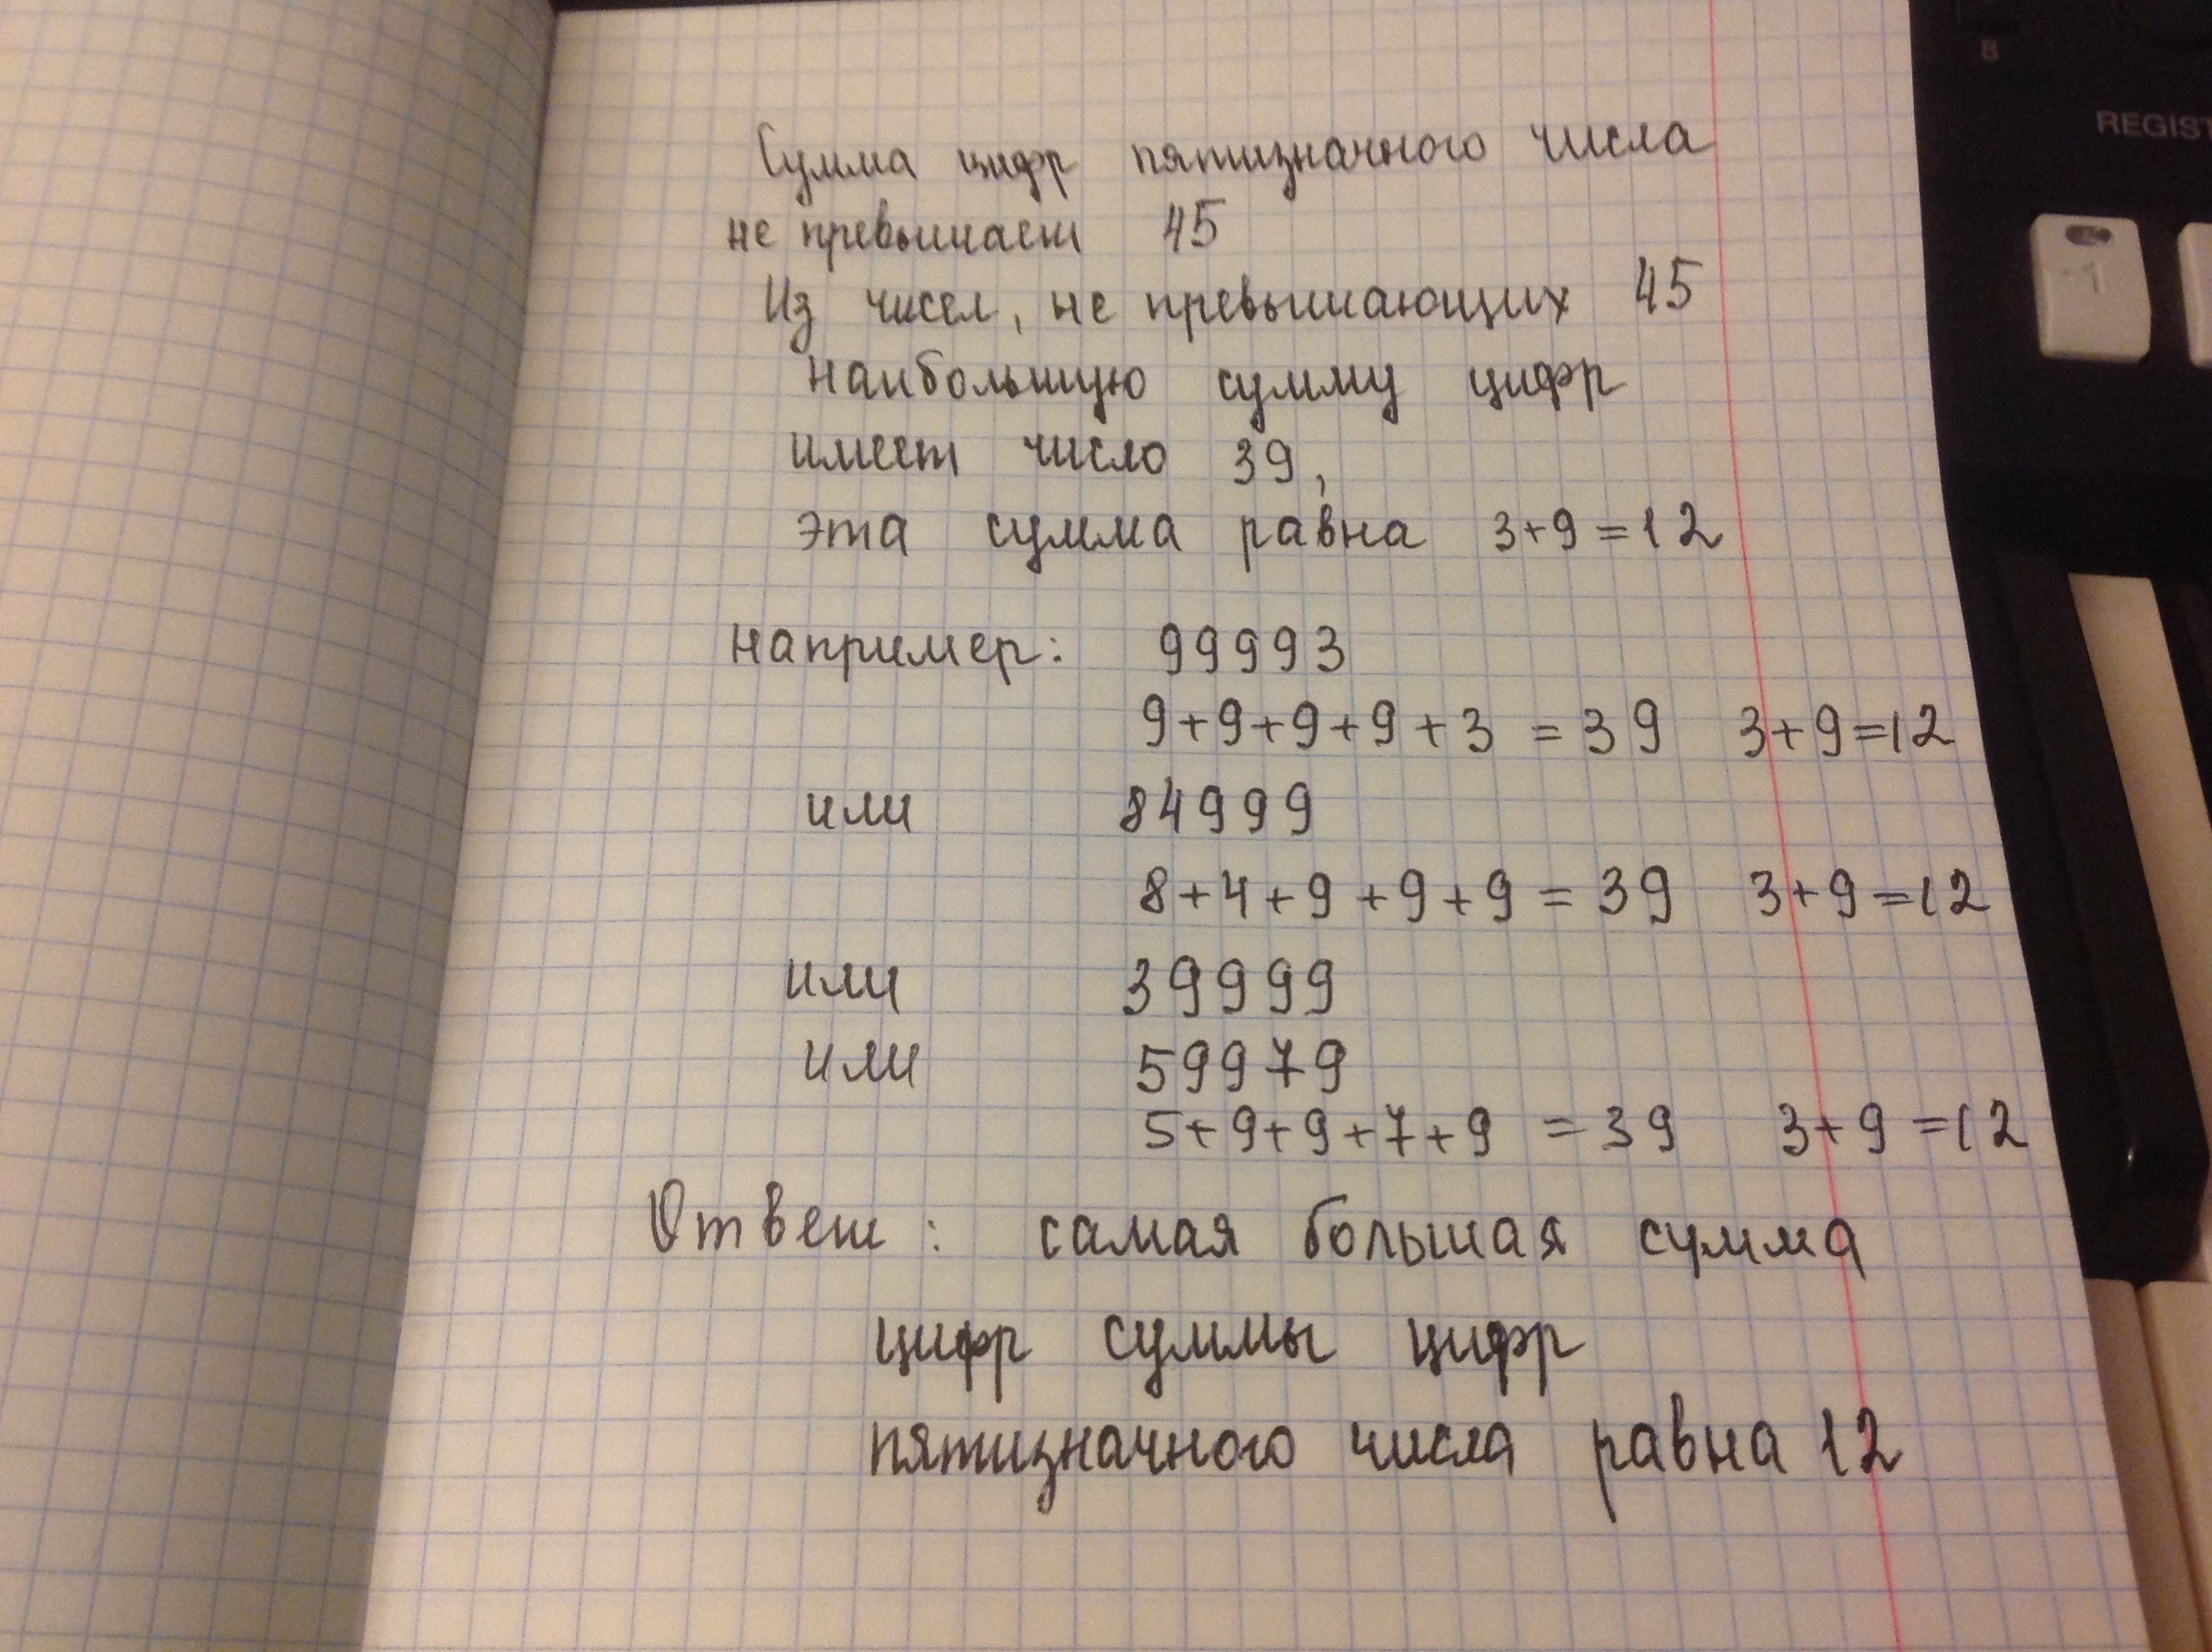 8
REGIST
1
Сумма цифр пятизначного числа
не превышает 45
Из чисел, не превышающих 45
наибольшую сумму цифр
имеет число 39,
эта сумма равна 3+9=12
например: 99993
9+9+9+9+3 = 39 3+9=12
или 84999
8+4+9+9+9=39 3+9=12
или 39999
или 59979
5+9+9+7+9 =39 3+9=12
Ответ: самая большая сумма
цифр суммы цифр
пятизначного числа равна 12